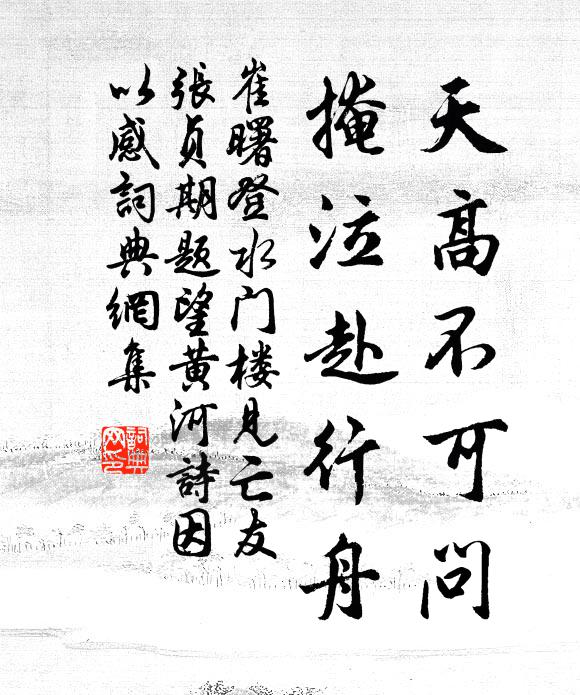 天高不可問
掩泣赴行舟
崔曙登水门楼見亡友
張貞期題望黄河詩因
以感詞典網集
詞典网印